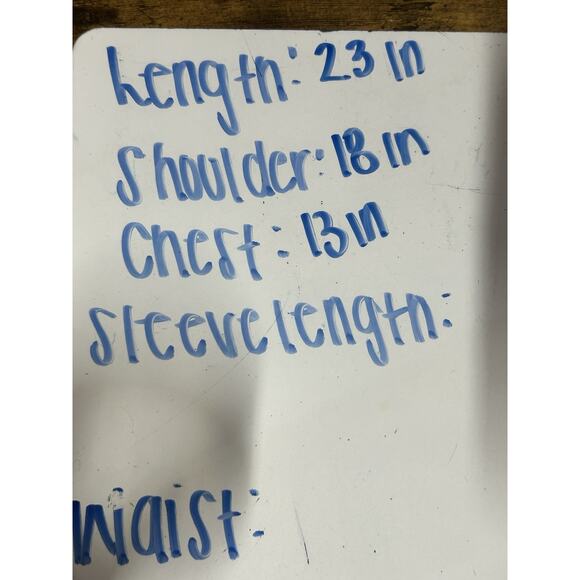 Length: 23 in
Shoulder: 18 in
Chest: 13 in
Sleeve length:
Waist: